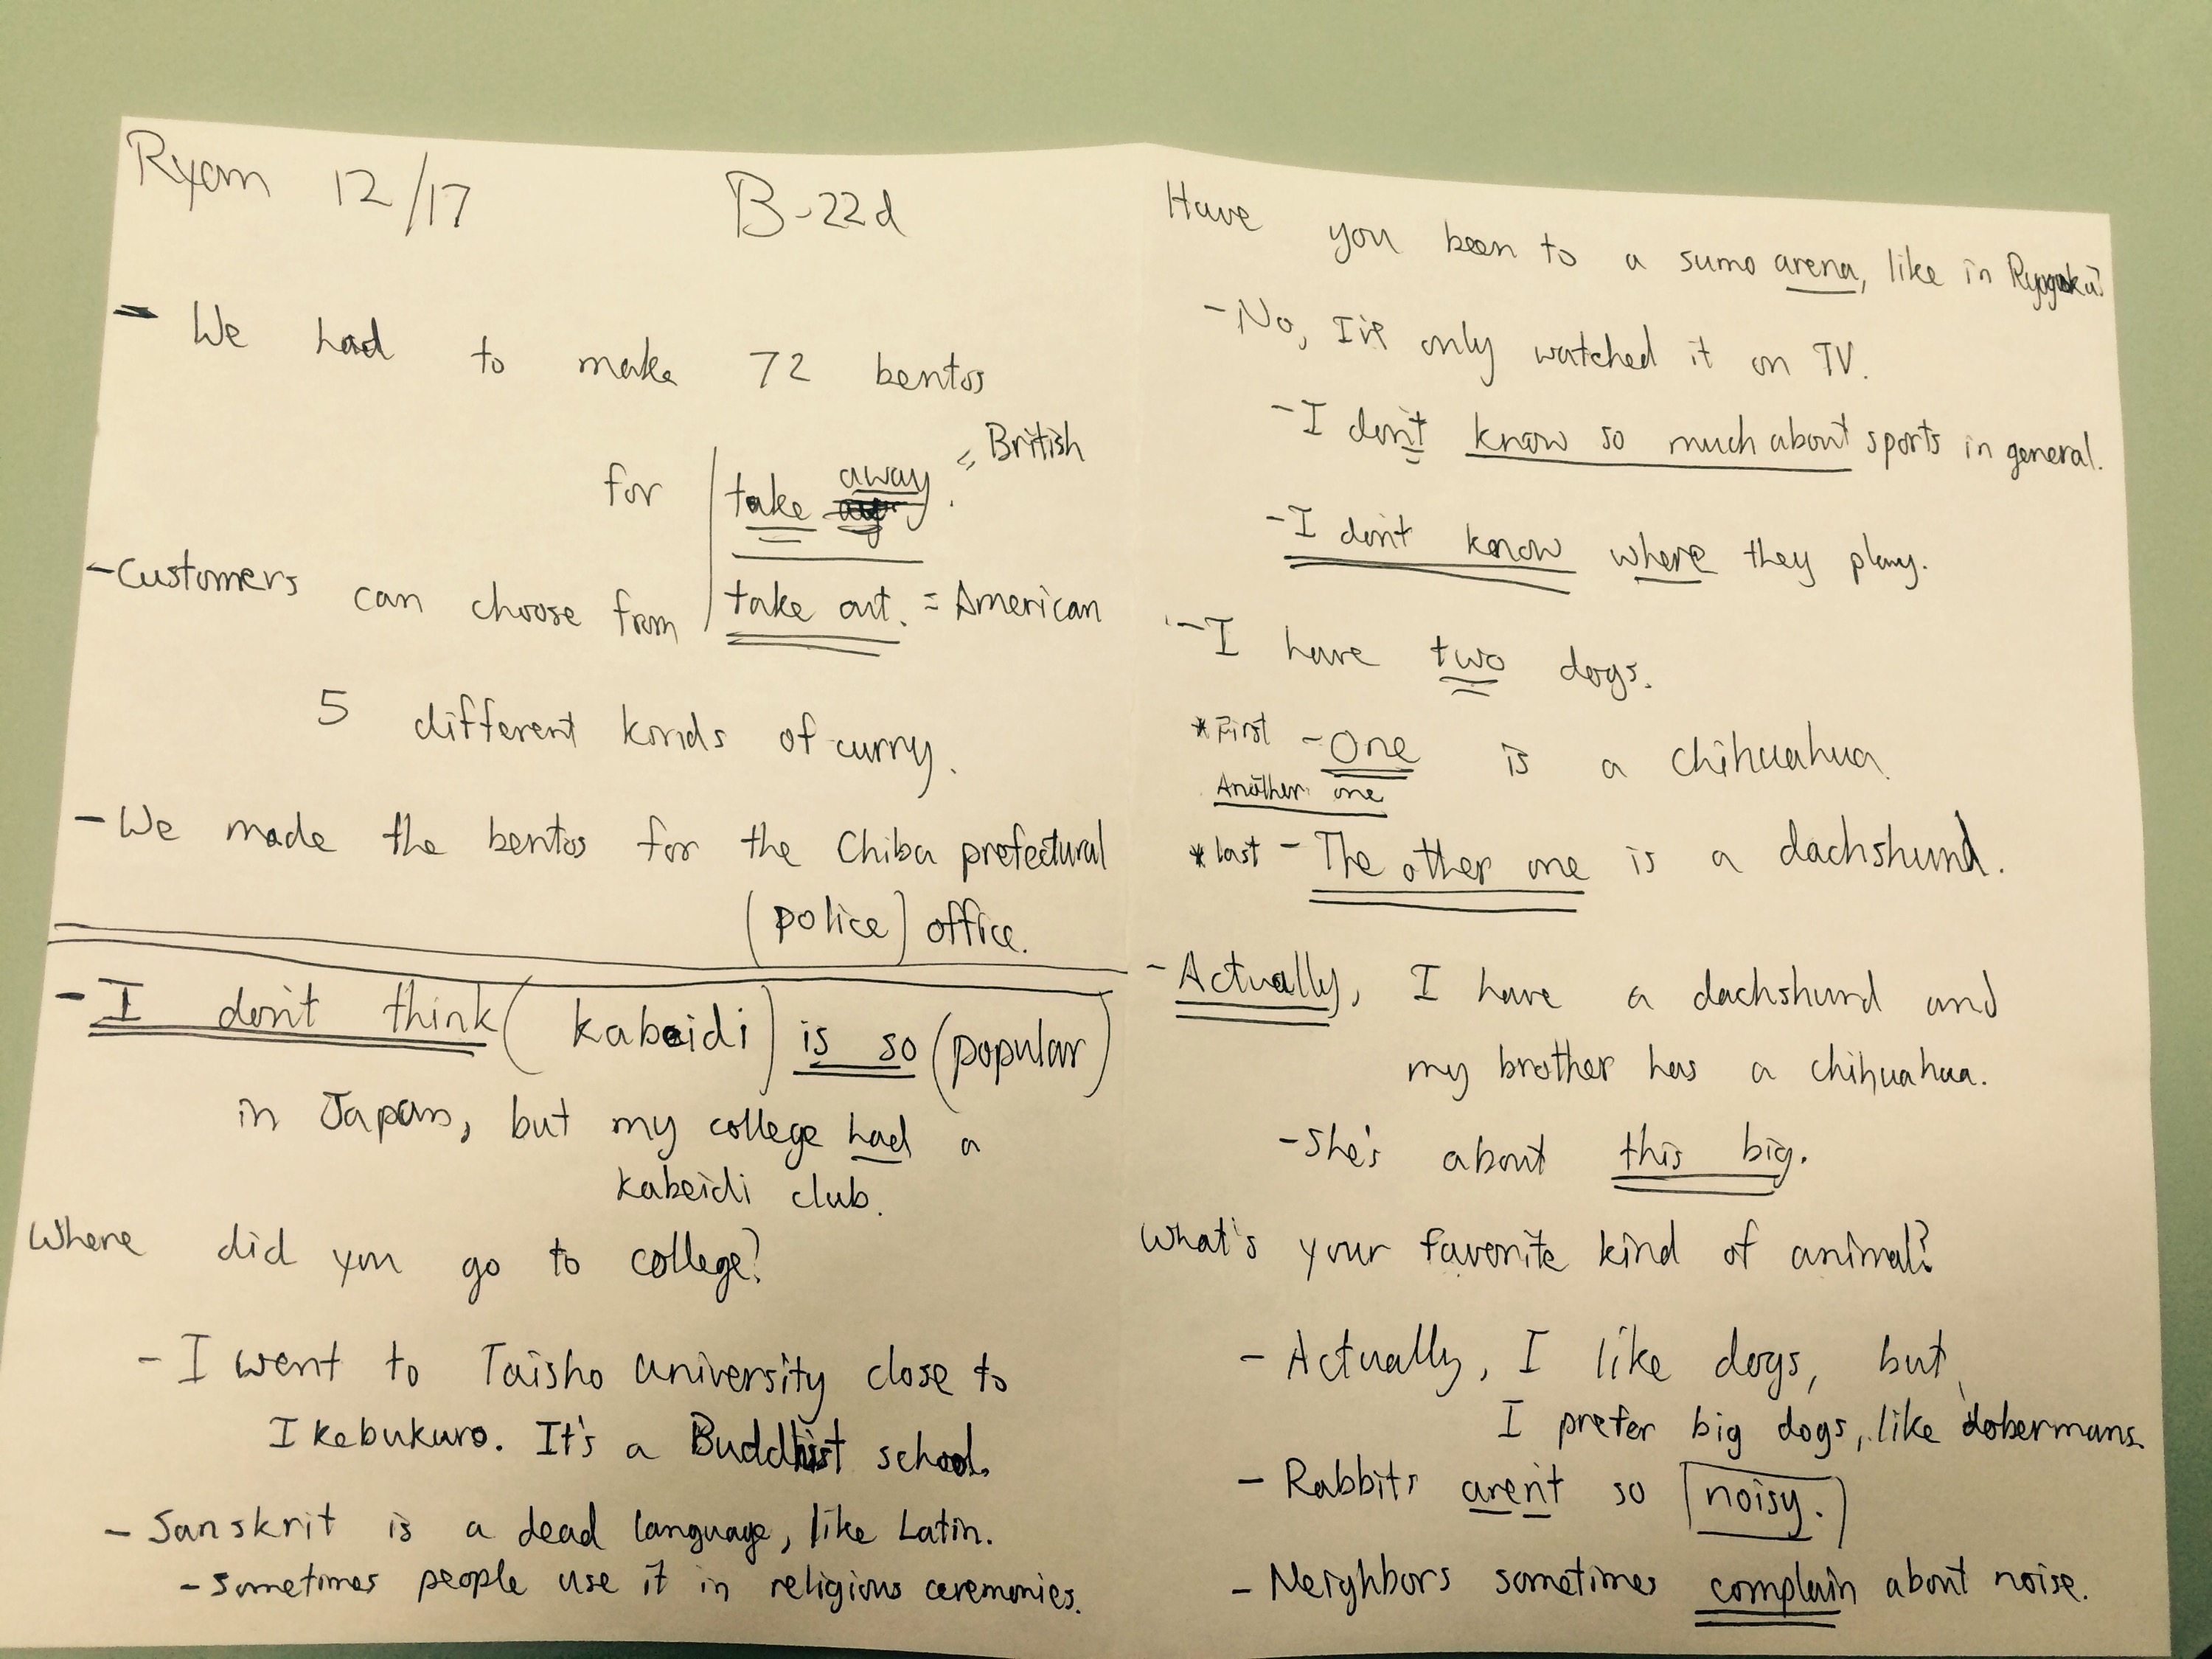 Ryan 12/17 B-22d
- We had to make 72 bentos
for take away. = British
take out. = American
- Customers can choose from
5 different kinds of curry.
- We made the bentos for the Chiba prefectural
(police) office.
- I don't think (kabaidi) is so (popular)
in Japan, but my college had a
kabaidi club.
Where did you go to college?
- I went to Taisho university close to
Ikebukuro. It's a Buddhist school.
- Sanskrit is a dead language, like Latin.
- Sometimes people use it in religious ceremonies.
Have you been to a sumo arena, like in Ryogoku?
- No, I've only watched it on TV.
- I don't know so much about sports in general.
- I don't know where they play.
- I have two dogs.
*First - One is a chihuahua.
Another one
*last - The other one is a dachshund.
- Actually, I have a dachshund and
my brother has a chihuahua.
- She's about this big.
What's your favorite kind of animal?
- Actually, I like dogs, but
I prefer big dogs, like dobermans.
- Rabbits aren't so noisy.
- Neighbors sometimes complain about noise.